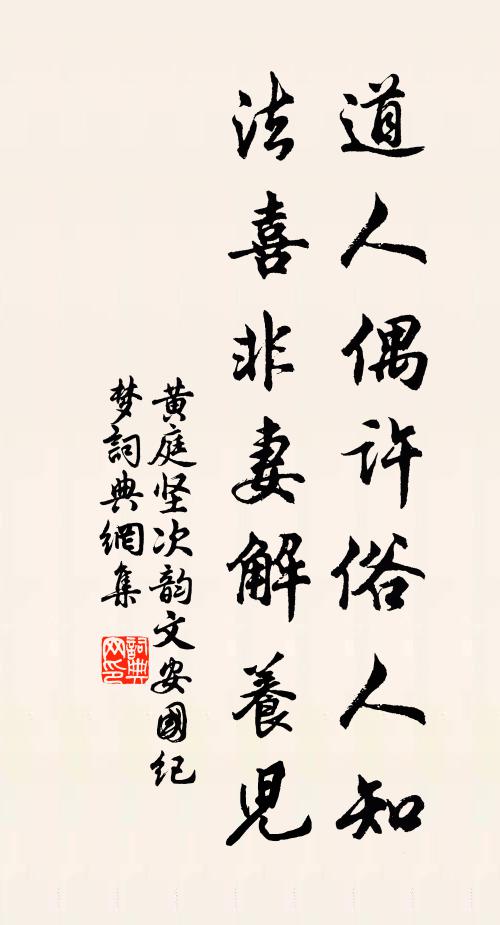 道人偶许俗人知
法喜非妻解養児
黄庭坚次韵文安國纪
梦詞典網集
詞典網印